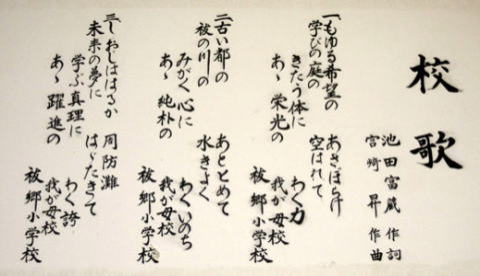 校歌
池田富蔵 作詞
宮崎 昇 作曲
一もゆる希望の あさぼらけ
学びの庭の 空はれて
きたう体に わく力
あゝ 栄光の 我が母校
祓郷小学校
二古い都の あととめて
祓の川の 水きよく
みがく心に わくいのち
あゝ 純朴の 我が母校
祓郷小学校
三しおじはるか 周防灘
未来の夢に はゞたきて
学ぶ真理に わく誇
あゝ 躍進の 我が母校
祓郷小学校